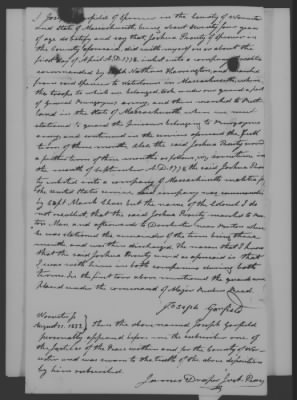 I Joseph Garfield of Spencer in the County of Worcester
and State of Massachusetts being about seventy four years
of age do testify and say that Joshua Prouty of Spencer in
the County aforesaid, did with myself in or about the
first day of April A.D. 1778 inlist into a company
commanded by Capt. Nathan Harrington, and marched
from said Spencer to Watertown in Massachusetts, where,
the troops to which we belonged took under our guard a part
of General Burgoynes army, and there marched to Rut-
land in the State of Massachusetts where we were
stationed to guard the prisoners belonging to Burgoynes
army and continued in the service aforesaid the full
term of three months. Also the said Joshua Prouty served
a further term of three months as follows, viz, sometime in
the month of September A.D. 1778 the said Joshua Prouty
inlisted into a company of Massachusetts militia for
the United States service, said company was commanded
by Capt. March Chase but the name of the Colonel I do
not recollect, that the said Joshua Prouty marched to Bos-
ton Mass and afterwards to Dorchester near Boston where
he was stationed the remainder of the term being three
months and was then discharged. The reason that I know
that the said Joshua Prouty served as aforesaid is that
I was with him in both companies during both
terms. In the first tour above mentioned the guard were
placed under the command of Major Reed
Joseph Garfield
Worcester ss
August 21. 1832 } Then the above named Joseph Garfield
personally appeared before me the subscriber one of
the Justices of the Peace within and for the County of Wor-
cester and was sworn to the truth of the above deposition
by him subscribed.
James Draper Just. Peace